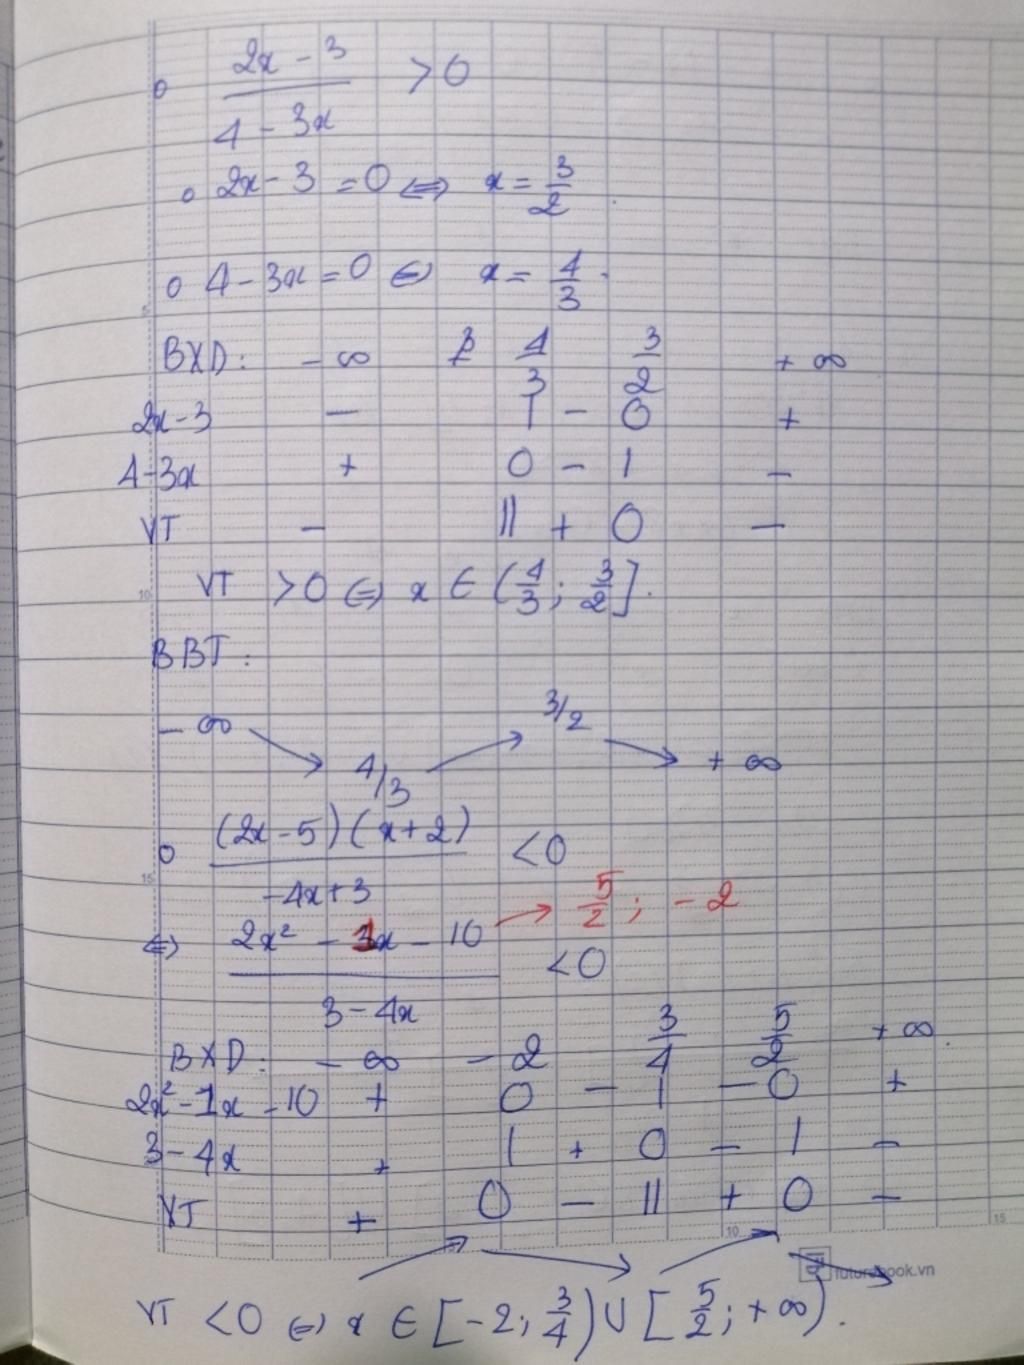 o (2x - 3)/(4 - 3x) > 0
o 2x - 3 = 0 ⇔ x = 3/2.
o 4 - 3x = 0 ⇔ x = 4/3.
BXD: - ∞ 4/3 3/2 + ∞
2x - 3 - | - 0 +
4 - 3x + 0 - | -
VT - || + 0 -
VT > 0 ⇔ x ∈ (4/3; 3/2].
BBT:
- ∞ ↘ 4/3 ↗ 3/2 ↘ + ∞
o ((2x - 5)(x + 2))/(-4x + 3) < 0
⇔ (2x² - 1x - 10)/(3 - 4x) < 0 → 5/2; -2
BXD: - ∞ - 2 3/4 5/2 + ∞.
2x² - 1x - 10 + 0 - | - 0 +
3 - 4x + | + 0 - | -
VT + 0 - || + 0 -
↗ ↘ ↗ ↘
futurebook.vn
VT < 0 ⇔ x ∈ [-2; 3/4) ∪ [5/2; +∞).
5
10
15
10
15